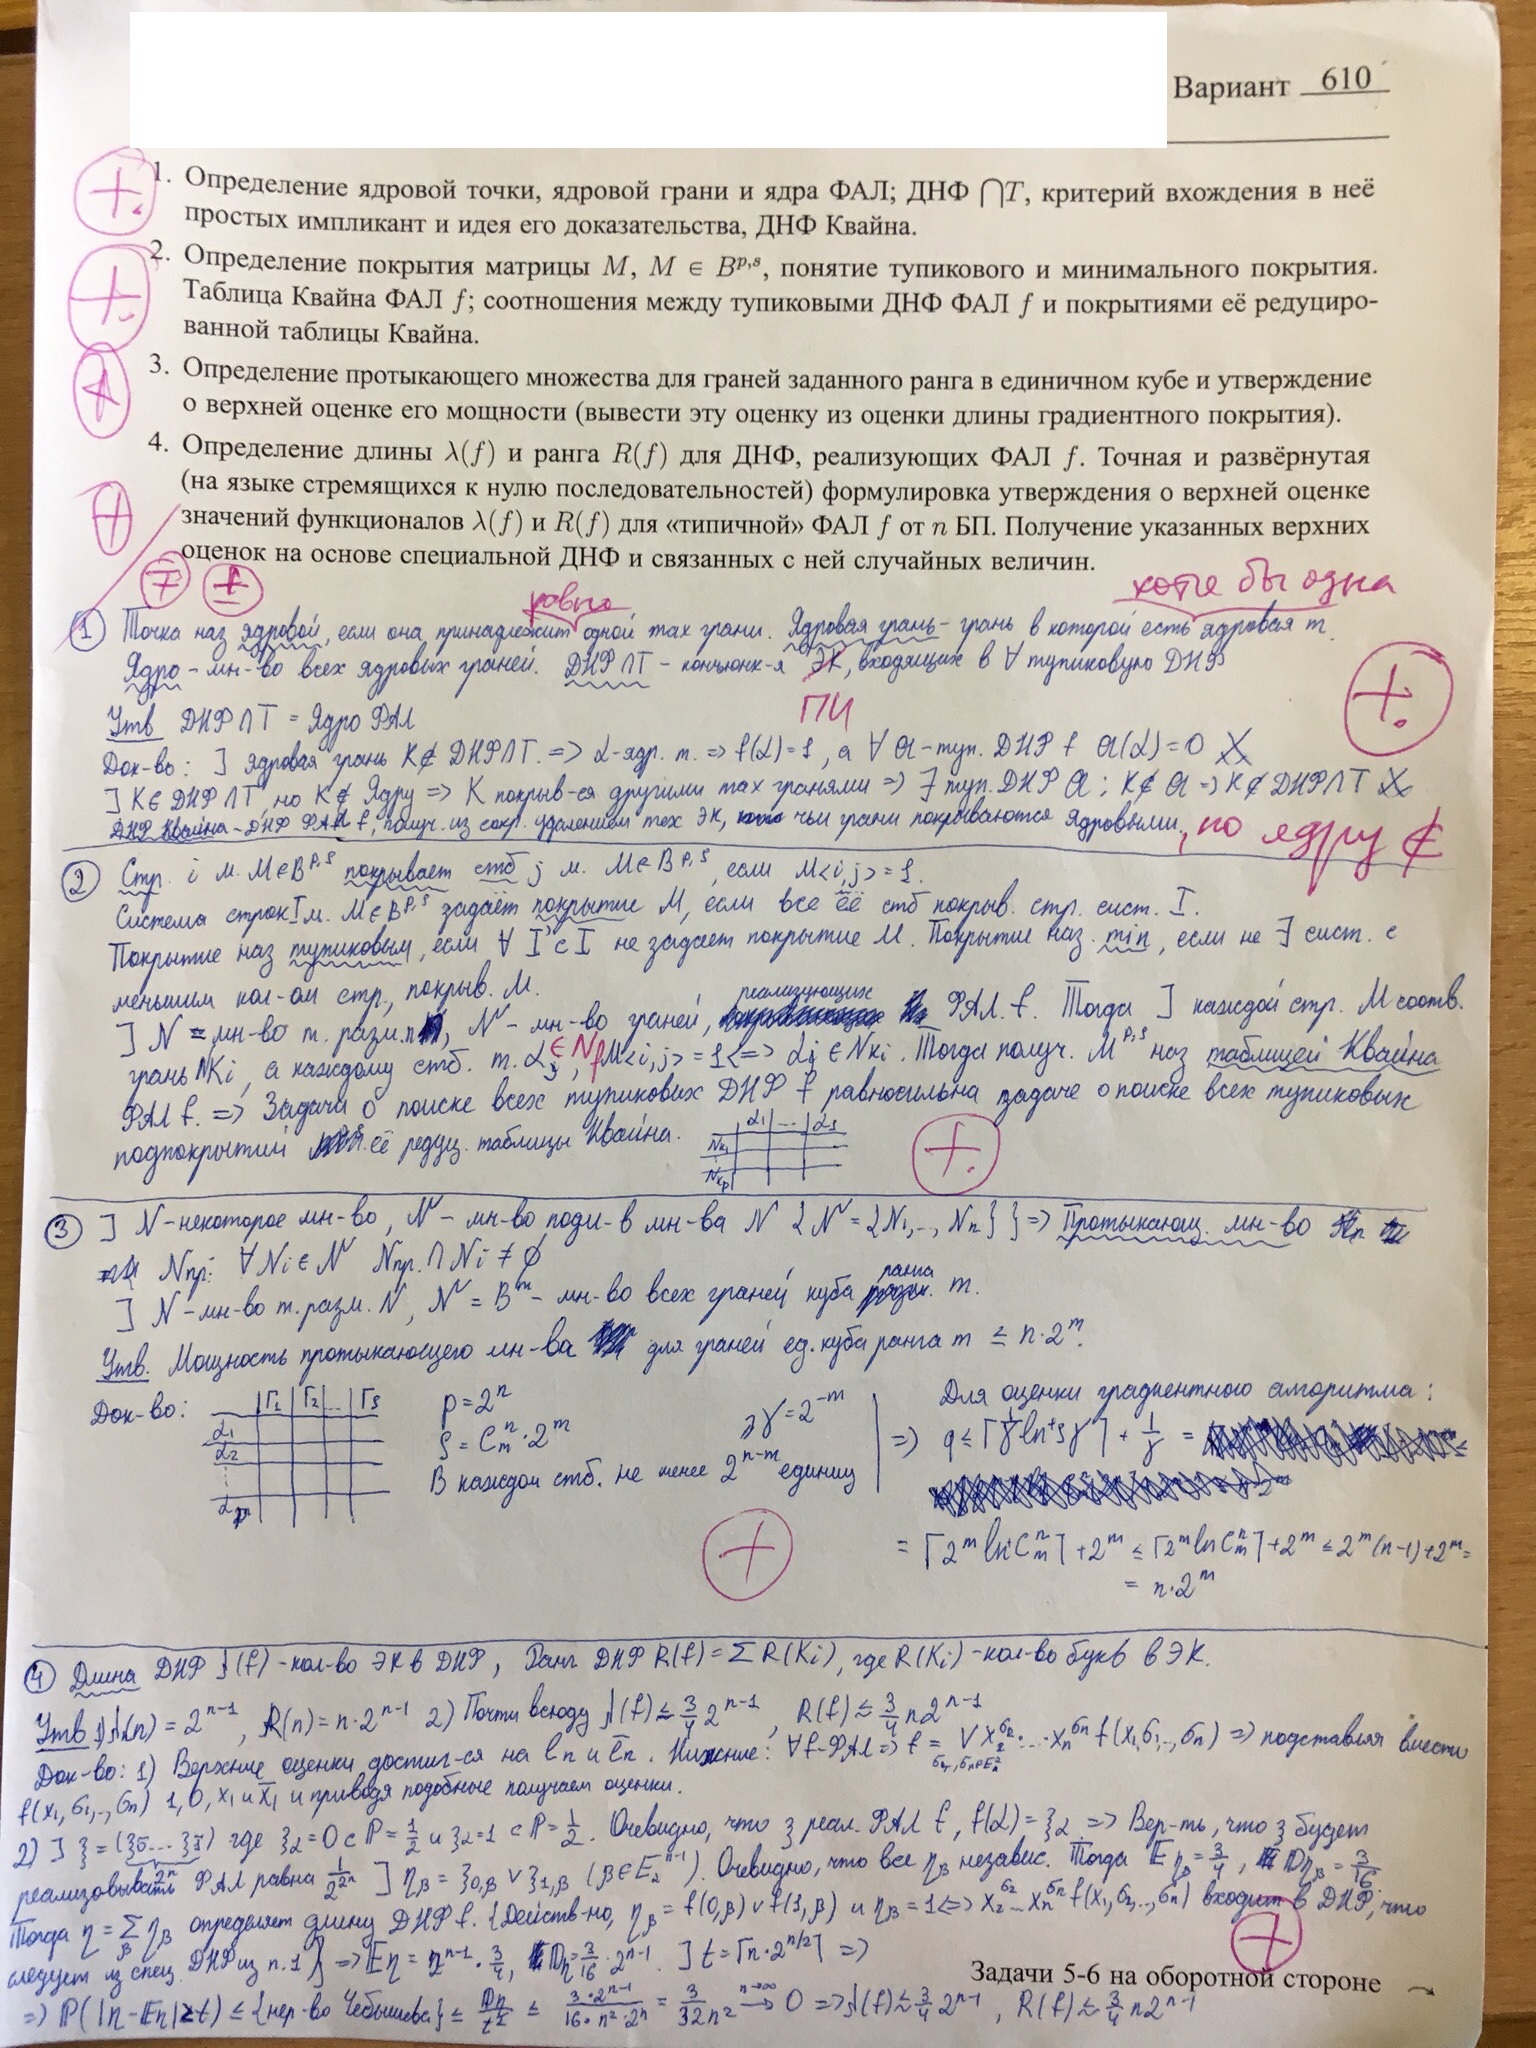 Вариант 610
1. Определение ядровой точки, ядровой грани и ядра ФАЛ; ДНФ ⋂T, критерий вхождения в неё
простых импликант и идея его доказательства, ДНФ Квайна.
2. Определение покрытия матрицы M, M ∈ B^{p,s}, понятие тупикового и минимального покрытия.
Таблица Квайна ФАЛ f; соотношения между тупиковыми ДНФ ФАЛ f и покрытиями её редуциро-
ванной таблицы Квайна.
3. Определение протыкающего множества для граней заданного ранга в единичном кубе и утверждение
о верхней оценке его мощности (вывести эту оценку из оценки длины градиентного покрытия).
4. Определение длины λ(f) и ранга R(f) для ДНФ, реализующих ФАЛ f. Точная и развёрнутая
(на языке стремящихся к нулю последовательностей) формулировка утверждения о верхней оценке
значений функционалов λ(f) и R(f) для «типичной» ФАЛ f от n БП. Получение указанных верхних
оценок на основе специальной ДНФ и связанных с ней случайных величин.
равно хотя бы одна
① Точка наз ядровой, если она принадлежит одной max грани. Ядровая грань - грань в которой есть ядровая т.
Ядро - мн-во всех ядровых граней. ДНФ ∩T - конъюнк-я ЭК, входящих в ∀ тупиковую ДНФ
ПИ
Утв ДНФ ∩T = Ядро ФАЛ
Док-во: ] ядровая грань K ∉ ДНФ∩T. => α-ядр. т. => f(α)=1, а ∀ 𝔄-туп. ДНФ f 𝔄(α)=0 X
] K∈ДНФ∩T, но K∉ Ядру => K покрыв-ся другими max гранями => ∃ туп. ДНФ 𝔄 : K∉𝔄 => K∉ДНФ∩T X
ДНФ Квайна - ДНФ ФАЛ f, получ. из сокр. удалением тех ЭК, чьи грани покрываются ядровыми, но ядру ∉
② Стр. i м. M∈B^{p,s} покрывает стб j м. M∈B^{p,s}, если M<i,j>=1.
Система строк I м. M∈B^{p,s} задаёт покрытие M, если все её стб покрыв. стр. сист. I.
Покрытие наз тупиковым, если ∀ I'⊂I не задает покрытие M. Покрытие наз. min, если не ∃ сист. с
меньшим кол-ом стр., покрыв. M.
] N - мн-во т. разм. n, 𝒩 - мн-во граней, реализующих ФАЛ f. Тогда ] каждой стр. M соотв.
грань N_{Ki}, а каждому стб. т. α_j ∈ N_f, M<i,j>=1 <=> α_j ∈ N_{Ki}. Тогда получ. M^{p,s} наз таблицей Квайна
ФАЛ f. => Задача о поиске всех тупиковых ДНФ f равносильна задаче о поиске всех тупиковых
подпокрытий её редуц. таблицы Квайна.
α₁ ... α_s
N_{K1}
N_{Kp}
③ ] N - некоторое мн-во, 𝒩 - мн-во подм-в мн-ва N {𝒩={N₁,.., N_n}} => Протыкающ. мн-во
N_пр: ∀ N_i ∈ 𝒩 N_пр. ∩ N_i ≠ ∅
] N - мн-во т. разм. N, 𝒩 = B^m - мн-во всех граней куба ранга m.
Утв. Мощность протыкающего мн-ва для граней ед. куба ранга m ≤ n·2^m.
Док-во: Γ₁ Γ₂ ... Γ_s
α₁
α₂
α_p
p=2^n
s=C_m^n·2^m
В каждом стб. не менее 2^{n-m} единиц
=> γ=2^{-m}
Для оценки градиентного алгоритма:
=> q ≤ ⌈1/γ ln⁺ sγ⌉ + 1/γ =
= ⌈2^m ln⁺ C_m^n⌉ + 2^m ≤ ⌈2^m ln C_m^n⌉ + 2^m ≤ 2^m(n-1)+2^m =
= n·2^m
④ Длина ДНФ λ(f) - кол-во ЭК в ДНФ, Ранг ДНФ R(f)=Σ R(K_i), где R(K_i) - кол-во букв в ЭК.
Утв 1) λ(n) = 2^{n-1}, R(n)=n·2^{n-1} 2) Почти всюду λ(f) ≲ 3/4 2^{n-1}, R(f) ≲ 3/4 n2^{n-1}
Док-во: 1) Верхние оценки достиг-ся на l_n и l̄_n. Нижние: ∀f-ФАЛ => f = ⋁ x₂^{σ₂}·...·x_n^{σ_n} f(x₁,σ₂,..,σ_n) => подставляя вместо
f(x₁,σ₂,..,σ_n) 1, 0, x₁ и x̄₁ и приводя подобные получаем оценки.
2) ] ξ = (ξ_0̃ ... ξ_1̃) где ξ_α=0 с P=1/2 и ξ_α=1 с P=1/2. Очевидно, что ξ реал. ФАЛ f, f(α)=ξ_α => Вер-ть, что ξ будет
2^n
реализовывать ФАЛ равна 1/2^{2^n} ] η_β = ξ_{0,β} ∨ ξ_{1,β} (β∈E₂^{n-1}). Очевидно, что все η_β независ. Тогда Eη_β = 3/4, Dη_β = 3/16
Тогда η = Σ_β η_β определяет длину ДНФ f. {Действ-но, η_β = f(0,β) ∨ f(1,β) и η_β=1 <=> x₂^{σ₂}...x_n^{σ_n} f(x₁,σ₂,..,σ_n) входит в ДНФ, что
следует из спец. ДНФ из п.1} => Eη = 2^{n-1}·3/4, Dη = 3/16·2^{n-1}. ] t=⌈n·2^{n/2}⌉ =>
Задачи 5-6 на оборотной стороне →
=> P(|η-Eη|≥t) ≤ {нер-во Чебышева} ≤ Dη/t² ≤ 3·2^{n-1}/16·n²·2^n = 3/32n² →^{n→∞} 0 => λ(f) ≲ 3/4 2^{n-1}, R(f) ≲ 3/4 n2^{n-1}